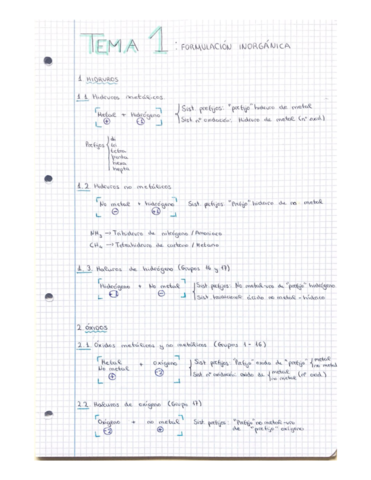 TEMA 1: FORMULACIÓN INORGÁNICA
1. HIDRUROS
1.1. Hidruros metálicos
[Metal + Hidrógeno] { Sist. prefijos: "prefijo" hidruro de metal
⊕ ⊖ Sist. nº oxidación: Hidruro de metal (nº oxid.)
Prefijos
di
tri
tetra
penta
hexa
hepta
1.2. Hidruros no metálicos
[No metal + Hidrógeno] Sist. prefijos: "Prefijo" hidruro de no metal
NH3 → Trihidruro de nitrógeno / Amoniaco
CH4 → Tetrahidruro de carbono / Metano
1.3. Haluros de hidrógeno (Grupos 16 y 17)
[Hidrógeno + No metal] { Sist. prefijos: No metal-uro de "prefijo" hidrógeno
ácido no metal-hídrico
2. ÓXIDOS
2.1. Óxidos metálicos y no metálicos (Grupos 1 - 16)
[Metal + oxígeno] { Sist. prefijos: "Prefijo" óxido de "prefijo" { metal
No metal no metal
Sist. nº oxidación: óxido de { metal (nº oxid.)
no metal
2.2. Haluros de oxígeno (Grupo 17)
[Oxígeno + no metal] Sist. prefijos: "Prefijo" no metal-uro
de "prefijo" oxígeno